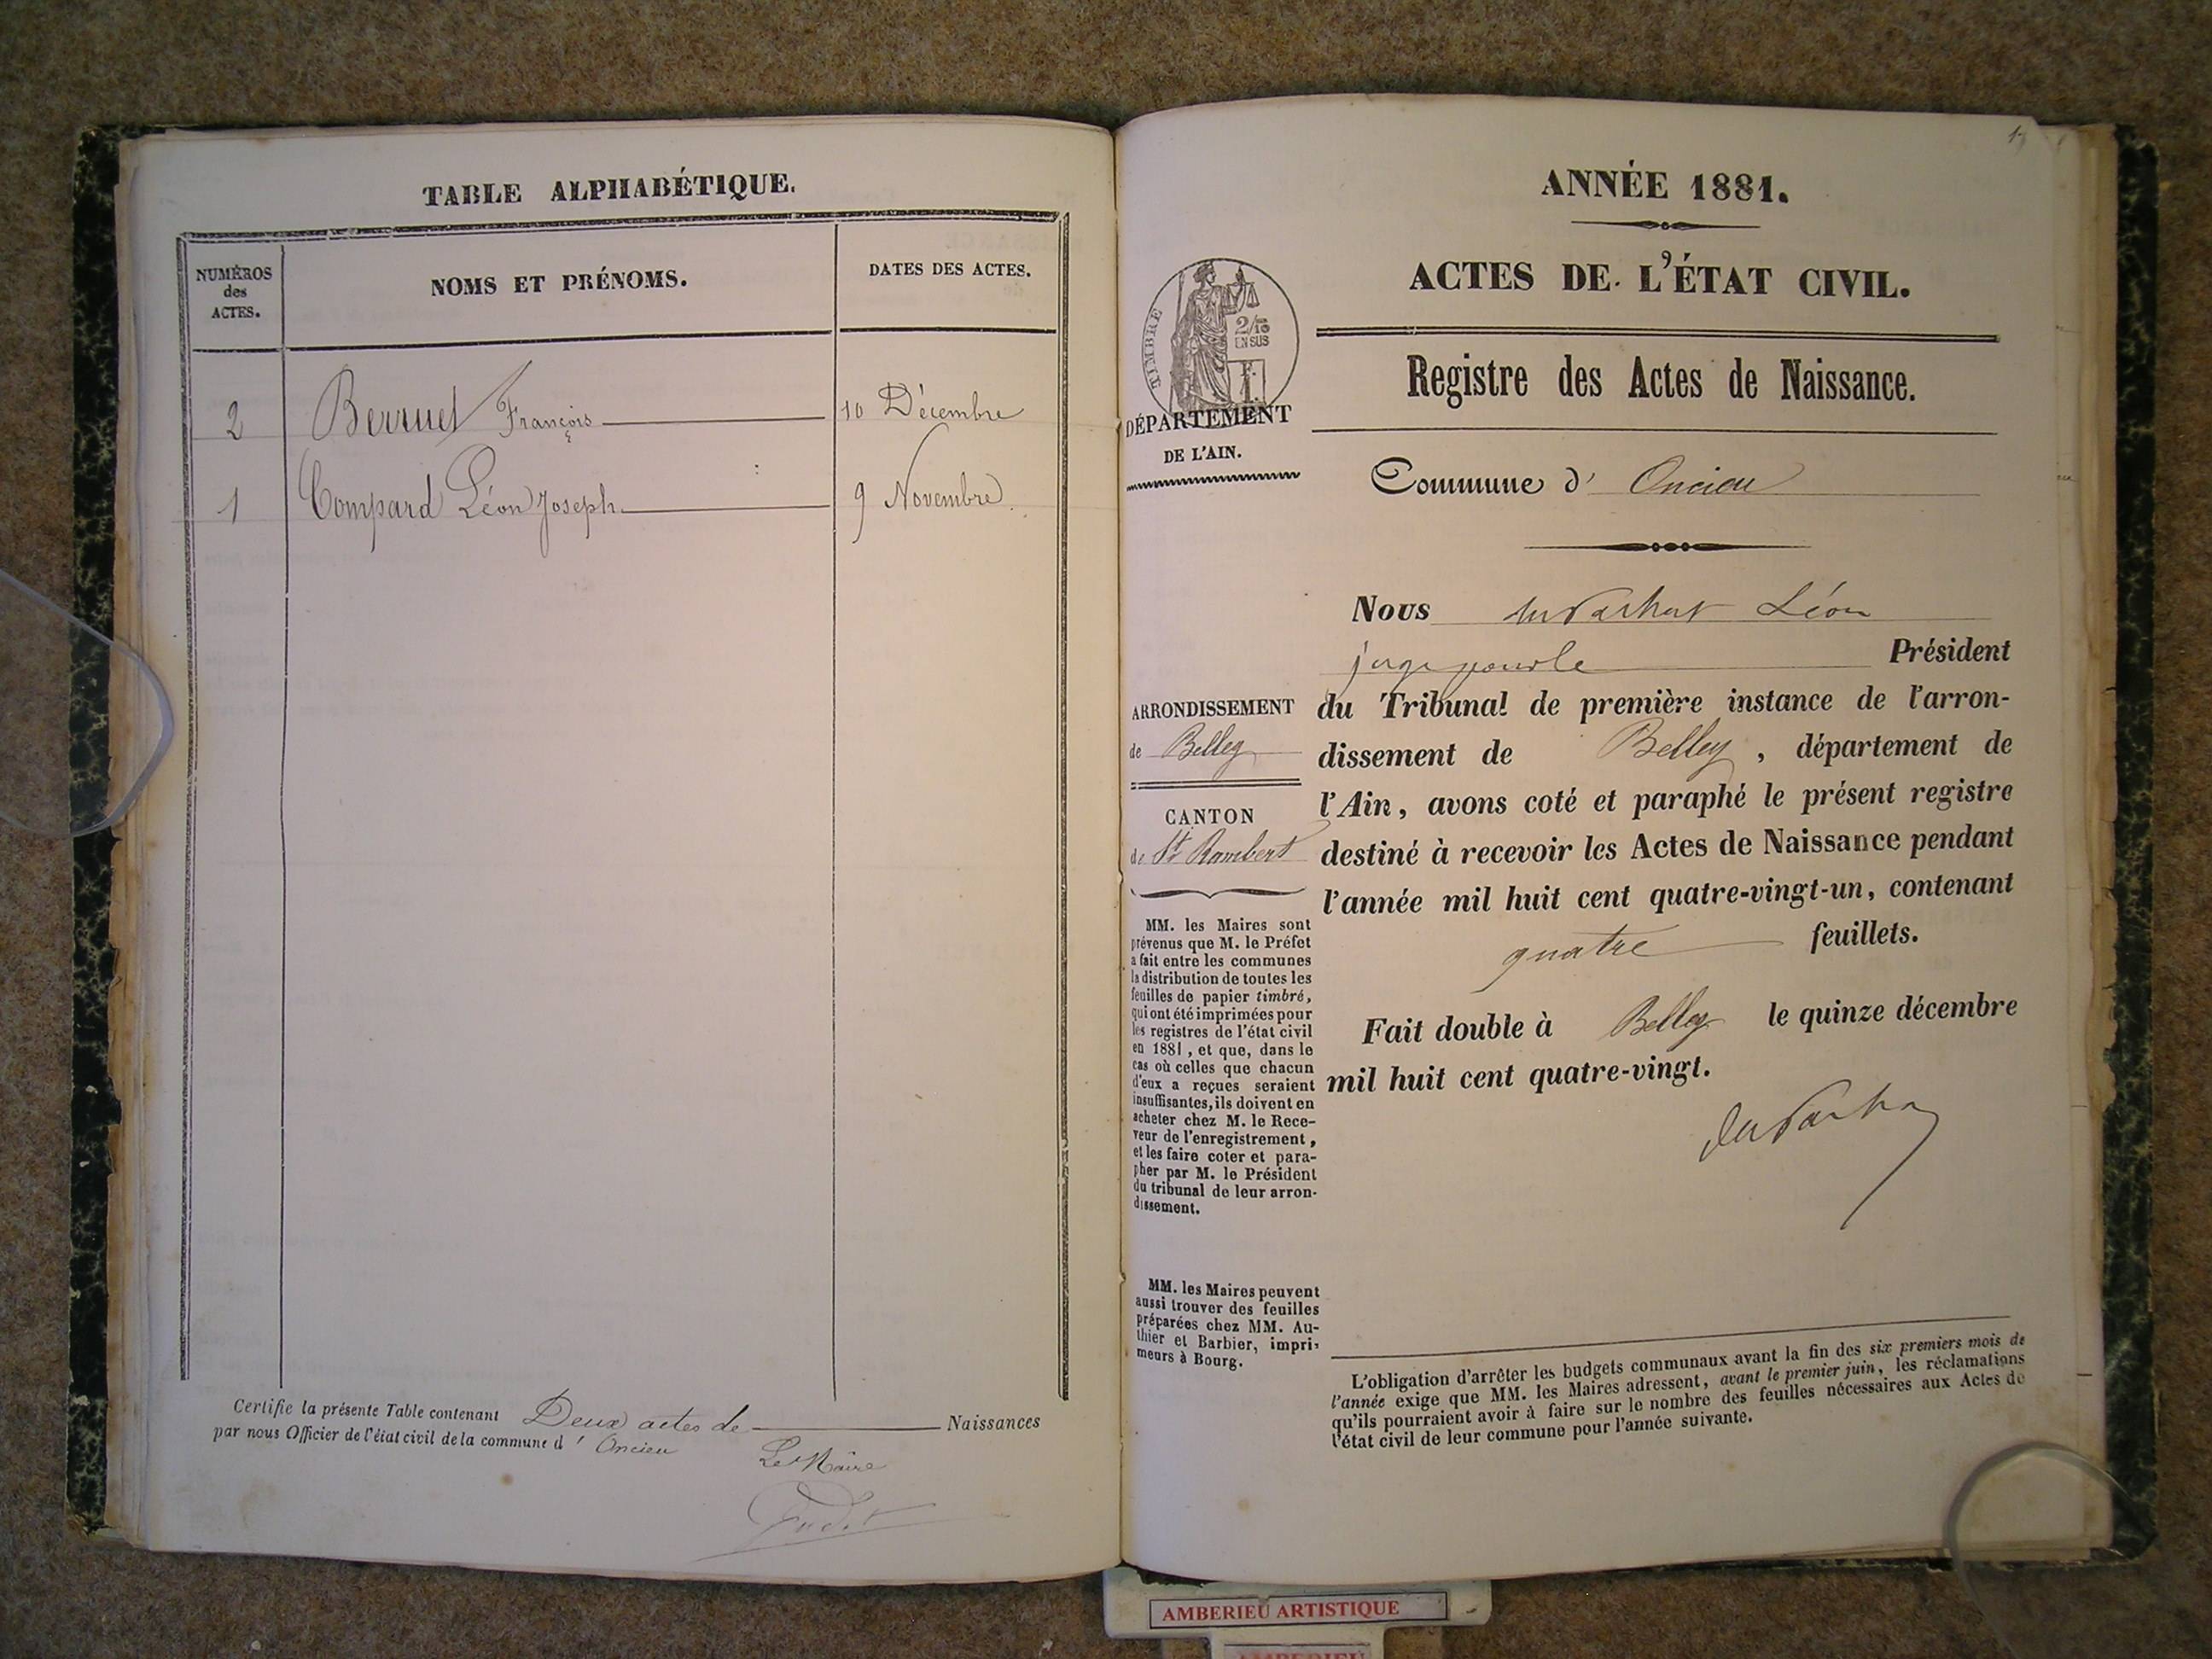 TABLE ALPHABÉTIQUE.
NUMÉROS
des
ACTES.
NOMS ET PRÉNOMS.
DATES DES ACTES.
2 Berruet François 10 Décembre
1 Compard Léon Joseph 9 Novembre
Certifie la présente Table contenant Deux actes de Naissances
par nous Officier de l'état civil de la commune d' Oncieu
Le Maire
1
ANNÉE 1881.
ACTES DE L'ÉTAT CIVIL.
TIMBRE
2/10
EN SUS
DÉPARTEMENT
DE L'AIN.
Registre des Actes de Naissance.
Commune d' Oncieu
Nous Léon
juge pour le Président
du Tribunal de première instance de l'arron-
dissement de Belley, département de
l'Ain, avons coté et paraphé le présent registre
destiné à recevoir les Actes de Naissance pendant
l'année mil huit cent quatre-vingt-un, contenant
quatre feuillets.
Fait double à Belley le quinze décembre
mil huit cent quatre-vingt.
ARRONDISSEMENT
de Belley
CANTON
de St Rambert
MM. les Maires sont
prévenus que M. le Préfet
a fait entre les communes
la distribution de toutes les
feuilles de papier timbré,
qui ont été imprimées pour
les registres de l'état civil
en 1881, et que, dans le
cas où celles que chacun
d'eux a reçues seraient
insuffisantes, ils doivent en
acheter chez M. le Rece-
veur de l'enregistrement,
et les faire coter et para-
pher par M. le Président
du tribunal de leur arron-
dissement.
MM. les Maires peuvent
aussi trouver des feuilles
préparées chez MM. Au-
thier et Barbier, impri-
meurs à Bourg.
L'obligation d'arrêter les budgets communaux avant la fin des six premiers mois de
l'année exige que MM. les Maires adressent, avant le premier juin, les réclamations
qu'ils pourraient avoir à faire sur le nombre des feuilles nécessaires aux Actes de
l'état civil de leur commune pour l'année suivante.
AMBERIEU ARTISTIQUE
AMBERIEU